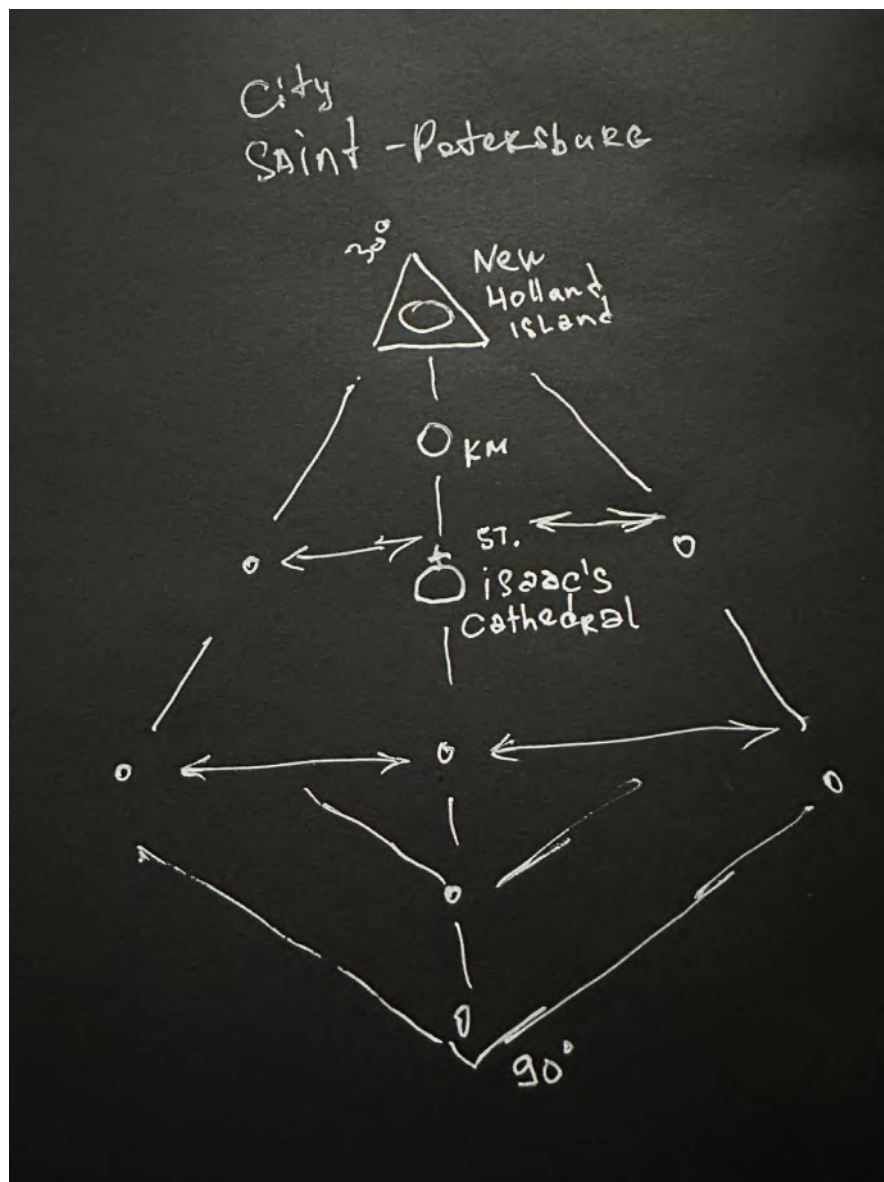 City
SAint -PeteRsbuRG
New
Holland
ISLand
KM
ST.
iSaac's
CatheDRal
90°